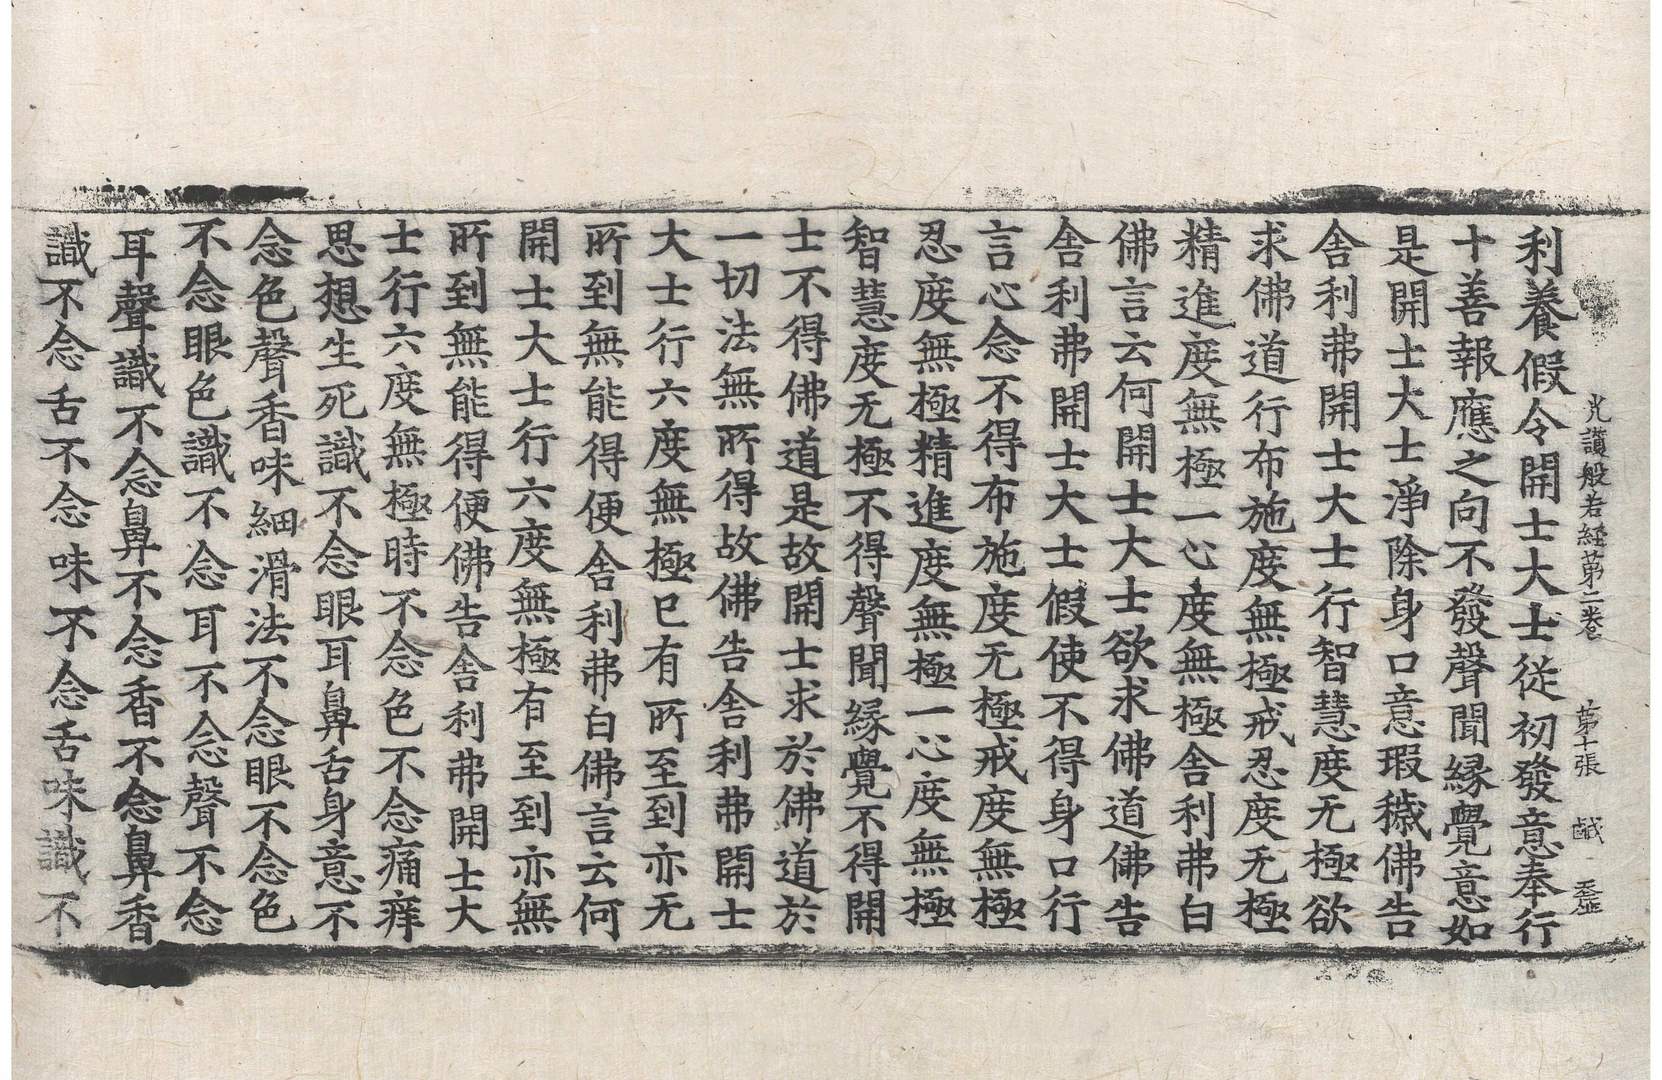 光讚般若經第二卷 第十張 鹹
利養假令開士大士從初發意奉行
十善報應之向不發聲聞緣覺意如
是開士大士淨除身口意瑕穢佛告
舍利弗開士大士行智慧度无極欲
求佛道行布施度無極戒忍度无極
精進度無極一心度無極舍利弗白
佛言云何開士大士欲求佛道佛告
舍利弗開士大士假使不得身口行
言心念不得布施度无極戒度無極
忍度無極精進度無極一心度無極
智慧度无極不得聲聞緣覺不得開
士不得佛道是故開士求於佛道於
一切法無所得故佛告舍利弗開士
大士行六度無極已有所至到亦无
所到無能得便舍利弗白佛言云何
開士大士行六度無極有至到亦無
所到無能得便佛告舍利弗開士大
士行六度無極時不念色不念痛痒
思想生死識不念眼耳鼻舌身意不
念色聲香味細滑法不念眼不念色
不念眼色識不念耳不念聲不念
耳聲識不念鼻不念香不念鼻香
識不念舌不念味不念舌味識不